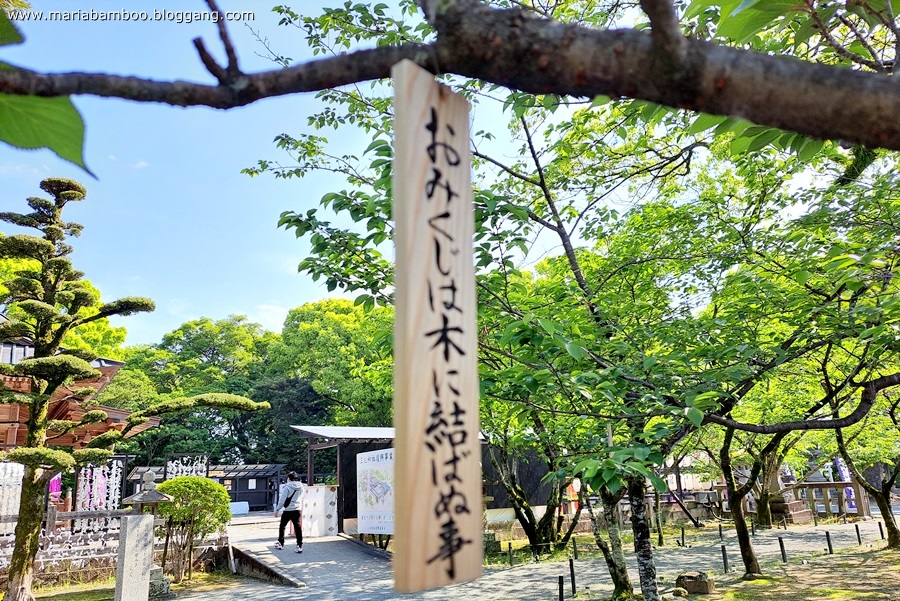 www.mariabamboo.bloggang.com
おみくじは木に結ばぬ事